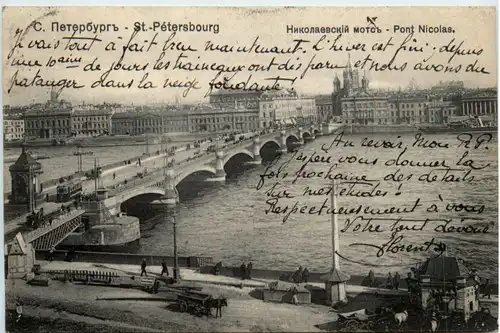 С. Петербургъ - St.-Pétersbourg
Николаевскій мостъ - Pont Nicolas.
il fait très beau maintenant. L'hiver est fini - depuis
une 10aine de jours les traineaux ont disparu et nous avons du
patauger dans la neige fondante.
Au revoir, Mon
J'espère vous donner la
fois prochaine des détails
sur mes études!
Respectueusement à vous
votre tout dévoué
Florentin